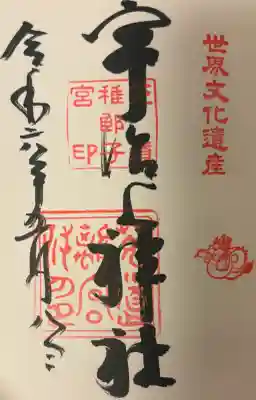 世界文化遺産
宇治上神社
莵道
稚郎子
宮印
令和六年九月八日